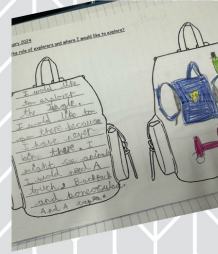 ary 2024
the role of explorers and where I would like to explore?
I would like
to explorer
the jungle.
I would like to
go there because
I have never
been there. I
might see animals
I would need A
touch, Backpack
and binoculars.
And A map.